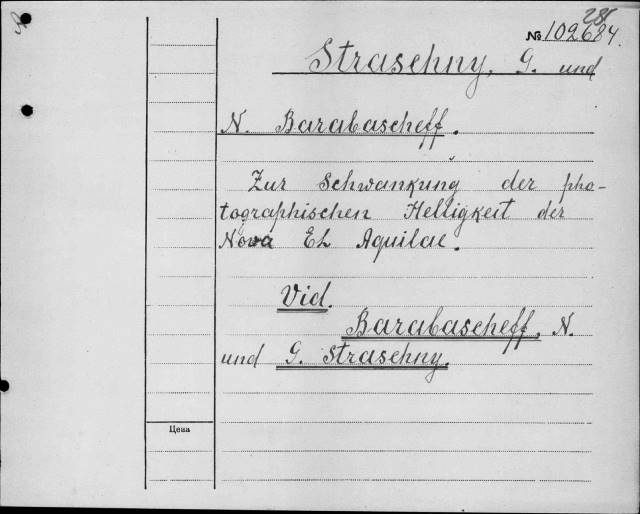 281
№ 102684.
Straschny, G. und
N. Barabascheff.
Zur Schwankung der pho-
tographischen Helligkeit der
Nova El Aquilae.
Vid.
Barabascheff, N.
und G. Straschny.
Цена